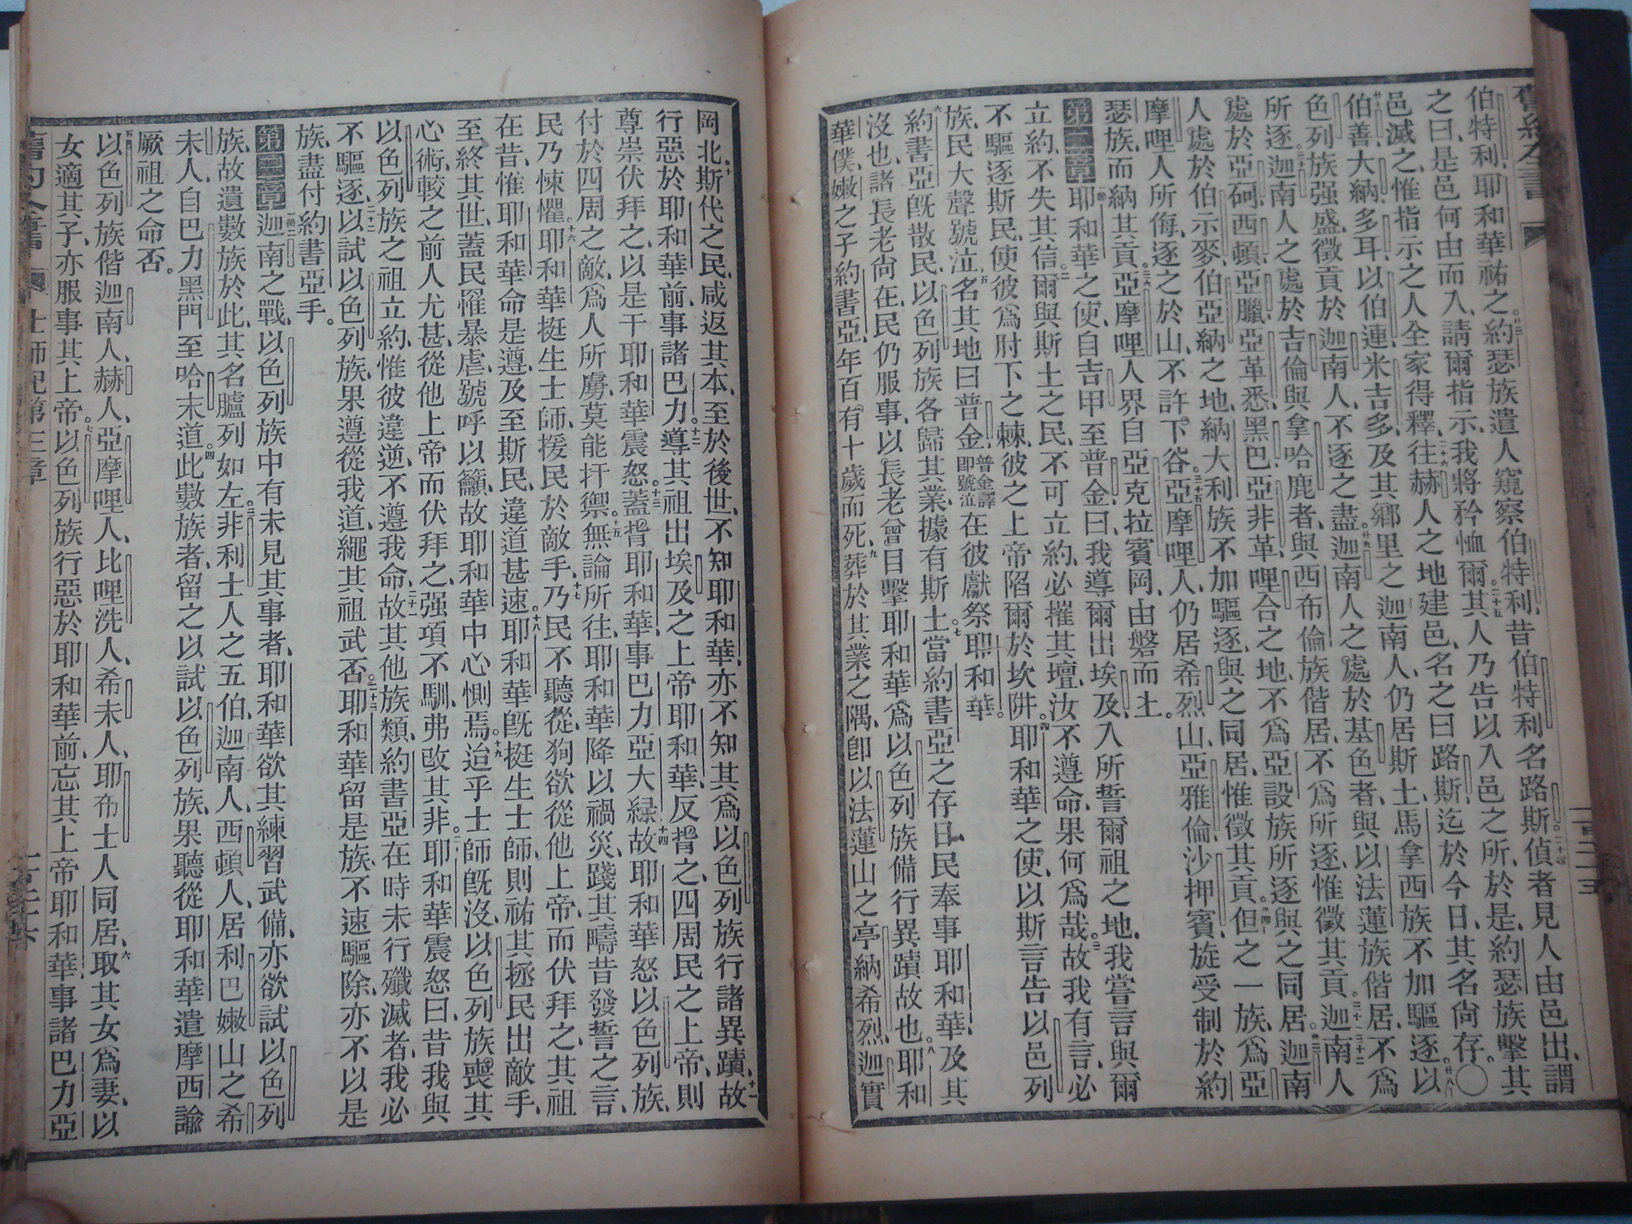 舊約全書
一百二十五
伯特利、耶和華祐之。約瑟族遣人窺察伯特利、昔伯特利名路斯、偵者見人由邑出、謂
之曰、是邑何由而入、請爾指示、我將矜恤爾。其人乃告以入邑之所、於是約瑟族擊其
邑滅之、惟指示之人全家得釋、往赫人之地建邑、名之曰路斯、迄於今日、其名尙存。〇
伯善、大納、多耳、以伯連、米吉多、及其鄉里之迦南人、仍居斯土、馬拿西族不加驅逐、以
色列族强盛、徵貢於迦南人、不逐之盡。迦南人之處於基色者、與以法蓮族偕居、不爲
所逐。迦南人之處於吉倫與拿哈鹿者、與西布倫族偕居、不爲所逐、惟徵其貢。迦南人
處於亞砢、西頓、亞臘、亞革悉、黑巴、亞非革、哩合之地、不爲亞設族所逐、與之同居。迦南
人處於伯示麥、伯亞納之地、納大利族不加驅逐、與之同居、惟徵其貢。但之一族、爲亞
摩哩人所侮、逐之於山、不許下谷。亞摩哩人仍居希烈山、亞雅倫、沙押賓、旋受制於約
瑟族、而納其貢。亞摩哩人界、自亞克拉賓岡、由磐而上。
第二章 耶和華之使、自吉甲至普金、曰、我導爾出埃及、入所誓爾祖之地、我嘗言與爾
立約、不失其信。爾與斯土之民、不可立約、必摧其壇、汝不遵命、果何爲哉。故我有言、必
不驅逐斯民、使彼爲肘下之棘、彼之上帝陷爾於坎阱。耶和華之使、以斯言告以色列
族、民大聲號泣、名其地曰普金、普金譯卽號泣在彼獻祭耶和華。
約書亞旣散民、以色列族各歸其業、據有斯土。當約書亞之存日、民奉事耶和華、及其
沒也、諸長老尙在、民仍服事、以長老曾目擊耶和華爲以色列族備行異蹟故也。耶和
華僕、嫩之子約書亞、年百有十歲而死、葬於其業之隅、卽以法蓮山之亭納希烈、迦實
岡北。斯代之民、咸返其本、至於後世、不知耶和華、亦不知其爲以色列族行諸異蹟、故
行惡於耶和華前、事諸巴力。導其祖出埃及之上帝耶和華、反棄之、四周民之上帝、則
尊崇伏拜之、以是干耶和華震怒。蓋棄耶和華、事巴力亞大綠、故耶和華怒以色列族、
付於四周之敵、爲人所虜、莫能扞禦。無論所往、耶和華降以禍災、踐其疇昔發誓之言、
民乃悚懼。耶和華挺生士師、援民於敵手、乃民不聽從、狥欲從他上帝而伏拜之、其祖
在昔、惟耶和華命是遵、及至斯民、違道甚速。耶和華旣挺生士師、則祐其拯民出敵手、
至終其世、蓋民罹暴虐、號呼以籲、故耶和華中心惻焉。迨乎士師旣沒、以色列族喪其
心術、較之前人尤甚、從他上帝而伏拜之、强項不馴、弗改其非。耶和華震怒曰、昔我與
以色列族之祖立約、惟彼違逆、不遵我命、故其他族類、約書亞在時未行殲滅者、我必
不驅逐、以試以色列族、果遵從我道、繩其祖武否。耶和華留是族、不速驅除、亦不以是
族、盡付約書亞手。
第三章 迦南之戰、以色列族中有未見其事者、耶和華欲其練習武備、亦欲試以色列
族、故遺數族於此、其名臚列如左、非利士人之五伯、迦南人、西頓人、居利巴嫩山之希
未人、自巴力黑門至哈末道。此數族者、留之以試以色列族、果聽從耶和華遣摩西諭
厥祖之命否。
以色列族偕迦南人、赫人、亞摩哩人、比哩洗人、希未人、耶布士人同居、取其女爲妻、以
女適其子、亦服事其上帝。以色列族行惡於耶和華前、忘其上帝耶和華、事諸巴力亞
舊約全書
士師記第三章
一百二十六